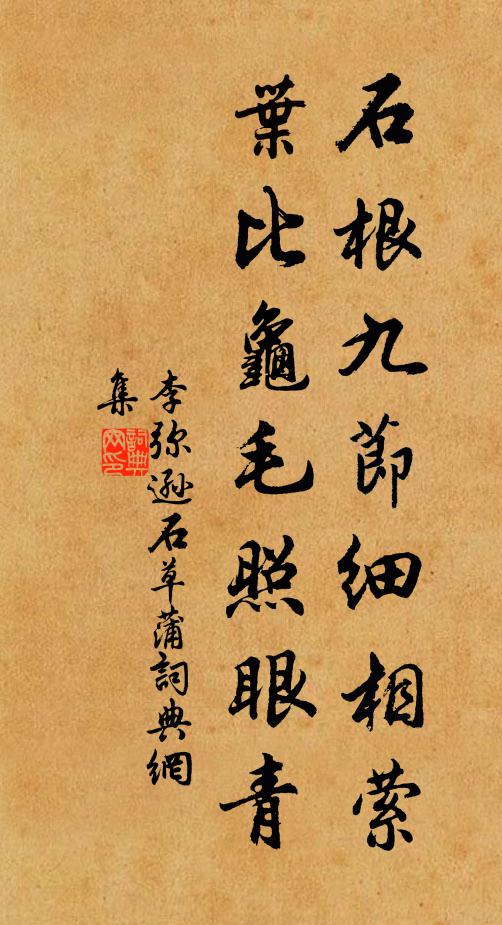 石根九節細相縈
葉比龜毛照眼青
李弥遜石草蒲詞典網
集
詞典網印